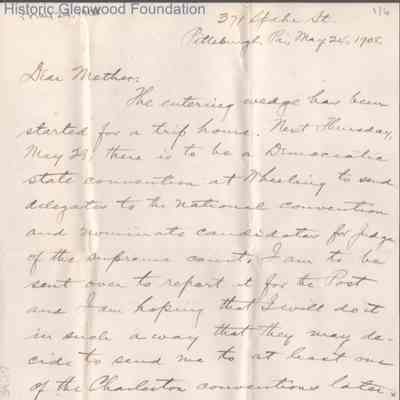 Historic Glenwood Foundation
1/6
371 Spahr St.
Pittsburgh, Pa, May 24, 1908.
Dear Mother:
The entering wedge has been
started for a trip home. Next Thursday,
May 28, there is to be a Democratic
state convention at Wheeling to send
delegates to the national convention
and nominate candidates for judges
of the supreme court. I am to be
sent over to report it for the Post
and I am hoping that I will do it
in such a way that they may de-
cide to send me to at least one
of the Charleston conventions later.